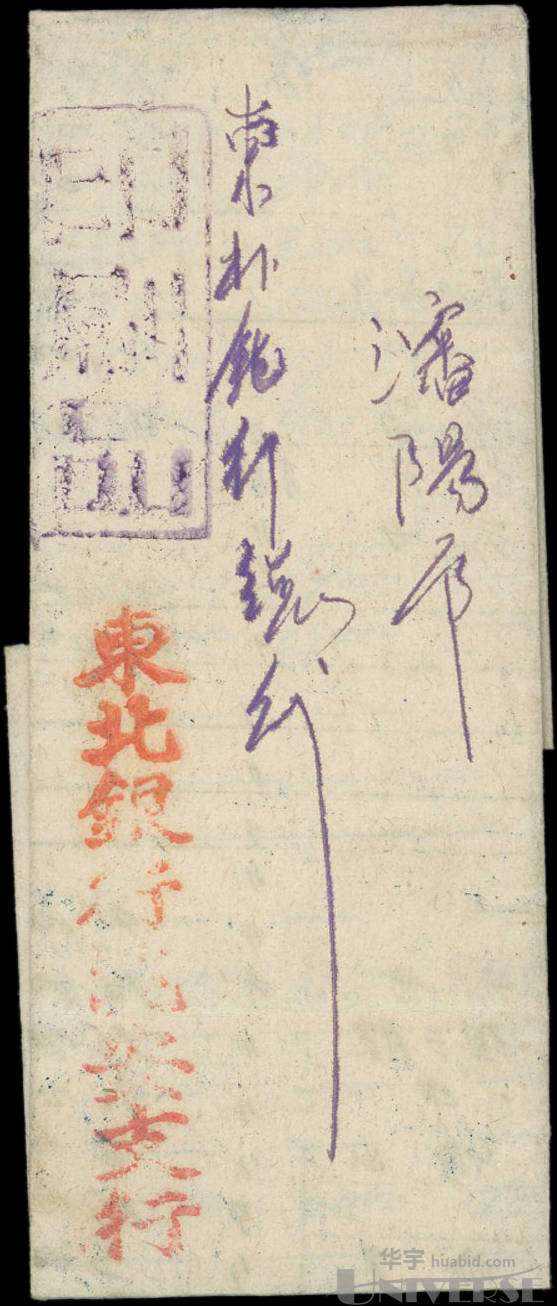 瀋陽市
東北銀行總行
印刷品
東北銀行洮安支行
华宇 huabid.com
UNIVERSE